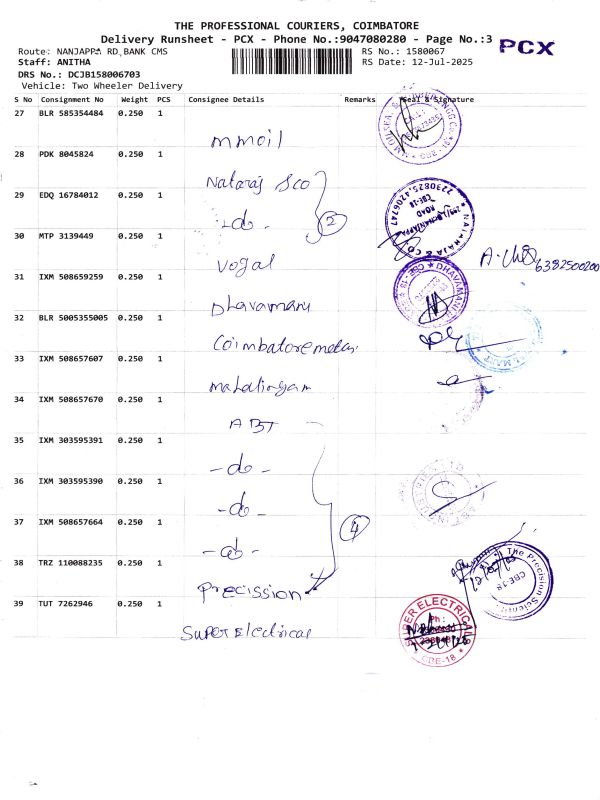 THE PROFESSIONAL COURIERS, COIMBATORE
Delivery Runsheet - PCX - Phone No.:9047080280 - Page No.:3
PCX
Route: NANJAPPA RD,BANK CMS
RS No.: 1580067
Staff: ANITHA
RS Date: 12-Jul-2025
DRS No.: DCJB158006703
Vehicle: Two Wheeler Delivery
S No Consignment No Weight PCS Consignee Details Remarks Seal & Signature
27 BLR 585354484 0.250 1
mmoil
28 PDK 8045824 0.250 1
Nataraj &co
29 EDQ 16784012 0.250 1
-do- 2
30 MTP 3139449 0.250 1
vogal
6382500200
31 IXM 508659259 0.250 1
Dhavamani
32 BLR 5005355005 0.250 1
Coimbatore metal
33 IXM 508657607 0.250 1
mahalingam
34 IXM 508657670 0.250 1
ABT
35 IXM 303595391 0.250 1
-do-
36 IXM 303595390 0.250 1
-do-
37 IXM 508657664 0.250 1
-do- 4
38 TRZ 110088235 0.250 1
Precission
The Precision Scientific
CBE-18
39 TUT 7262946 0.250 1
Super Electrical
SUPER ELECTRICALS
Ph :
CBE-18